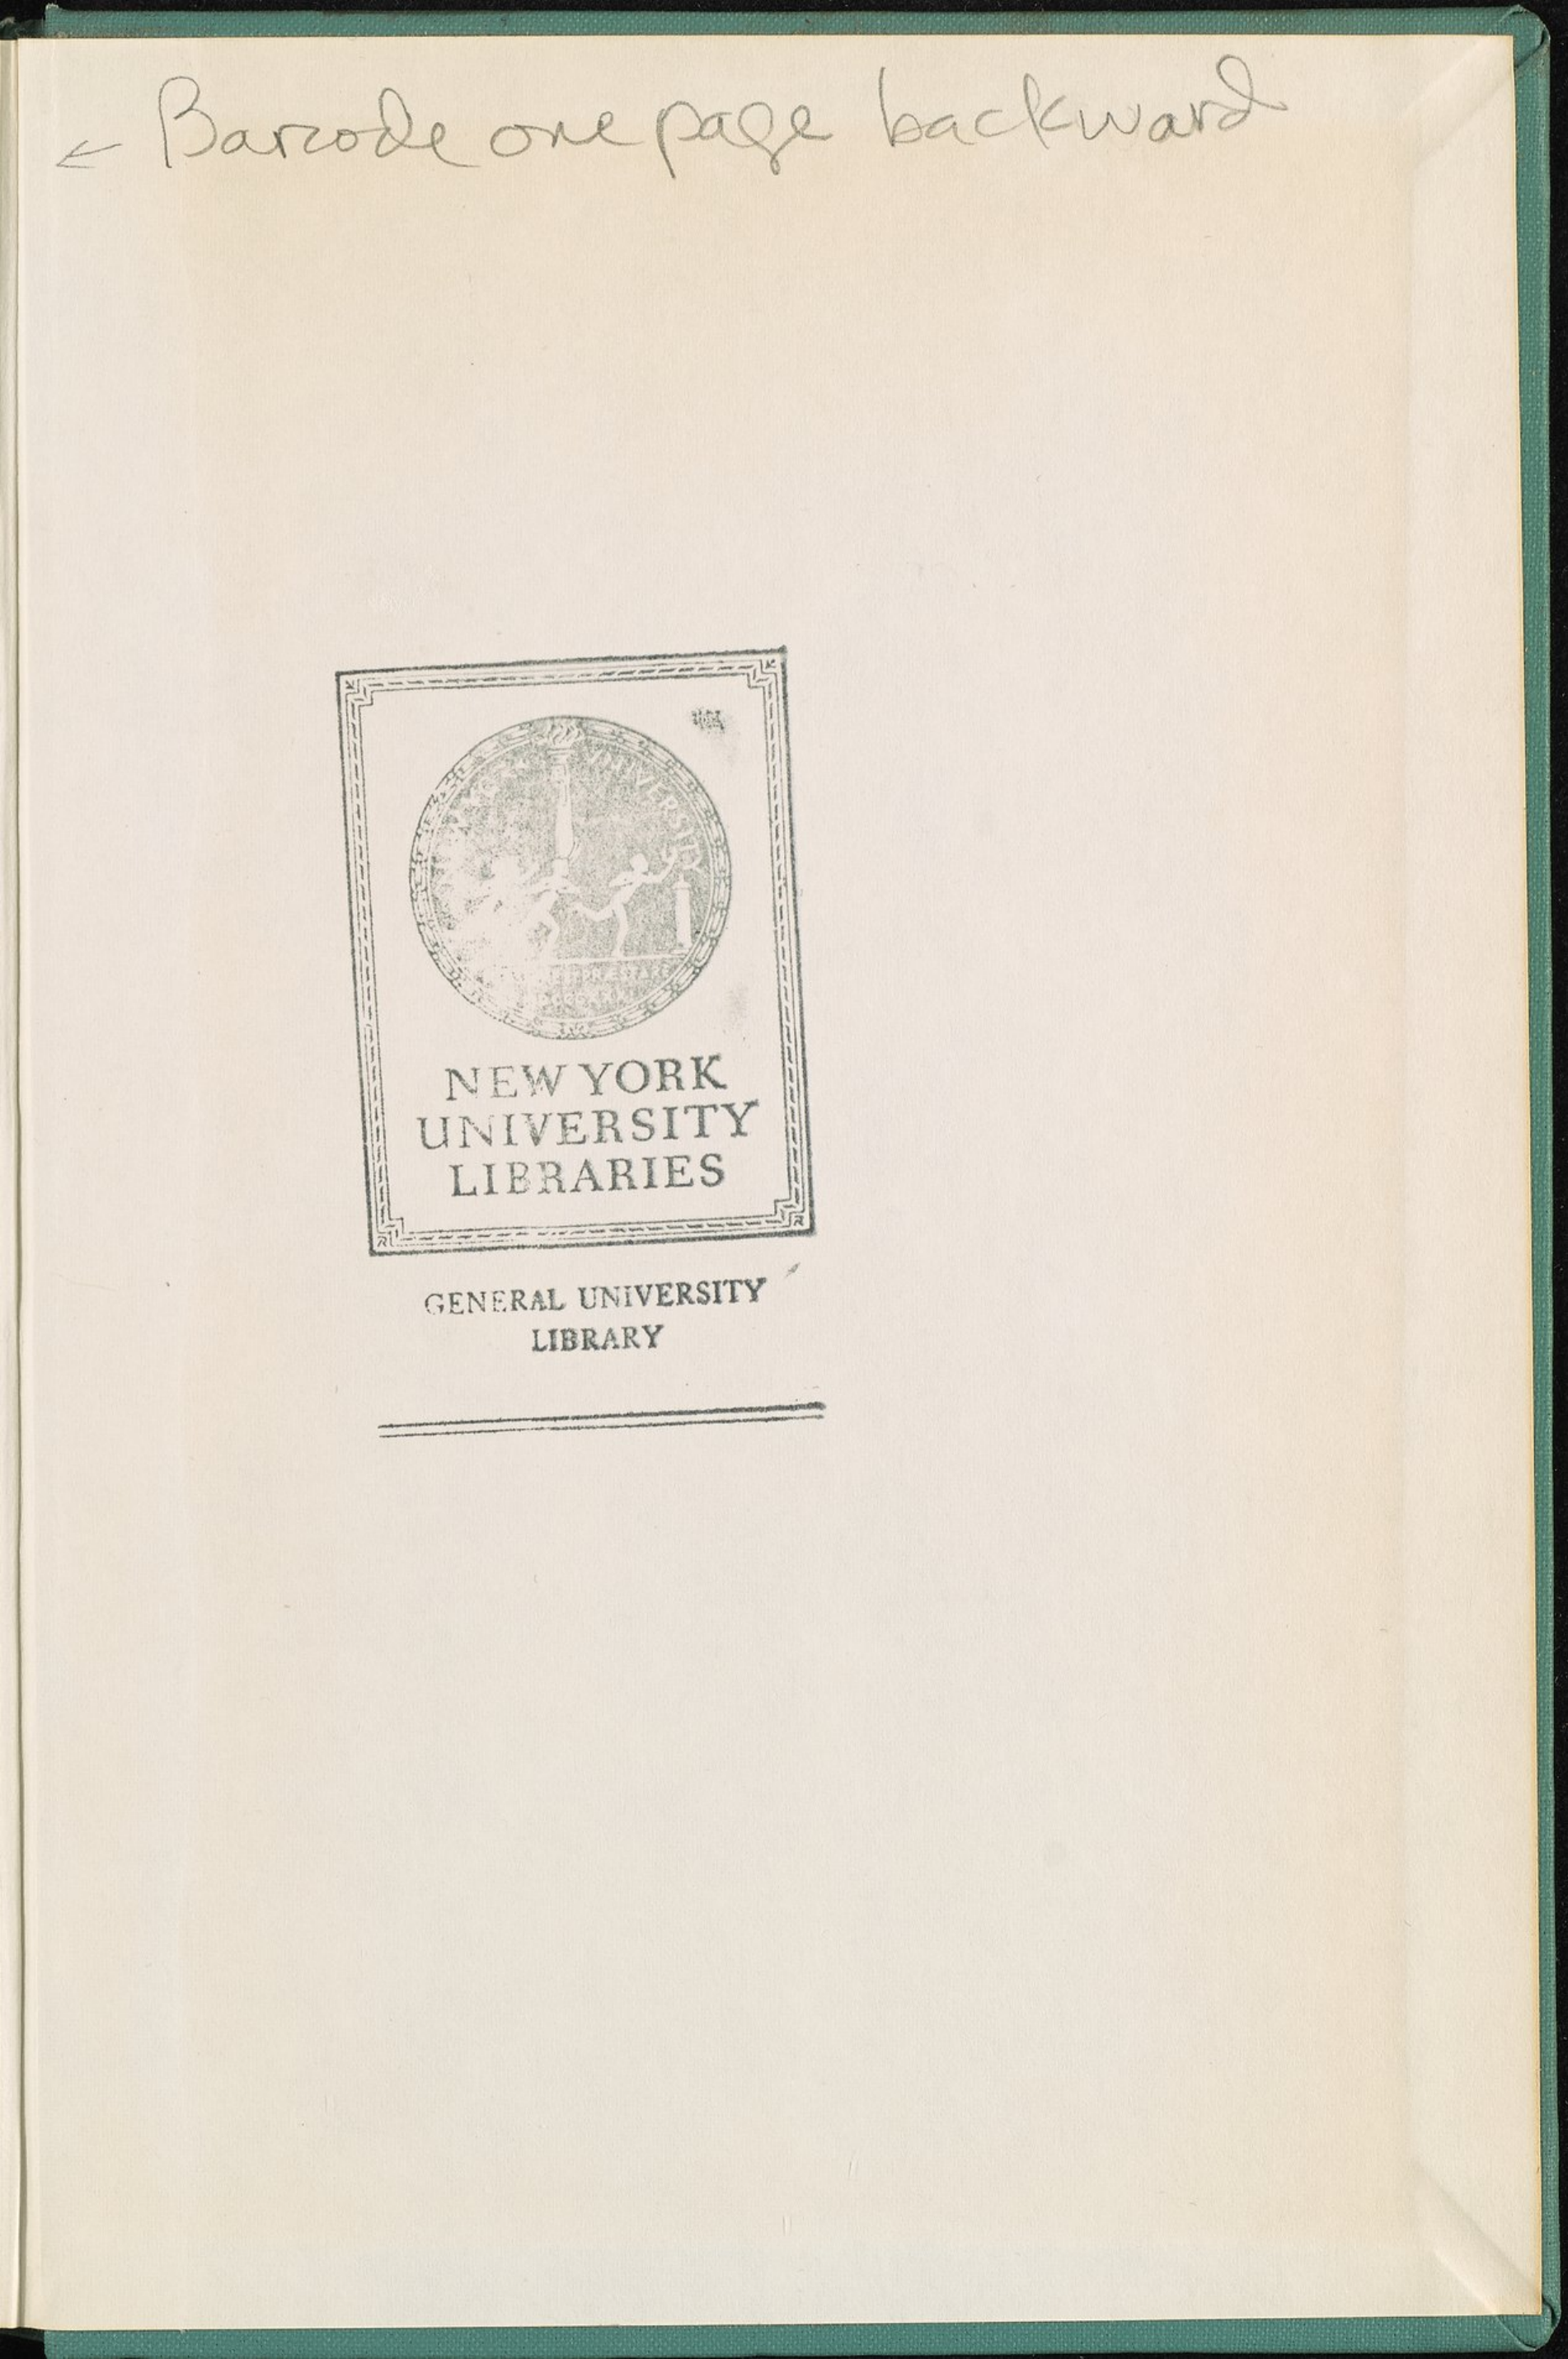 ← Barcode one page backward
UNIVERSITY
NEW YORK
UNIVERSITY
LIBRARIES
GENERAL UNIVERSITY
LIBRARY